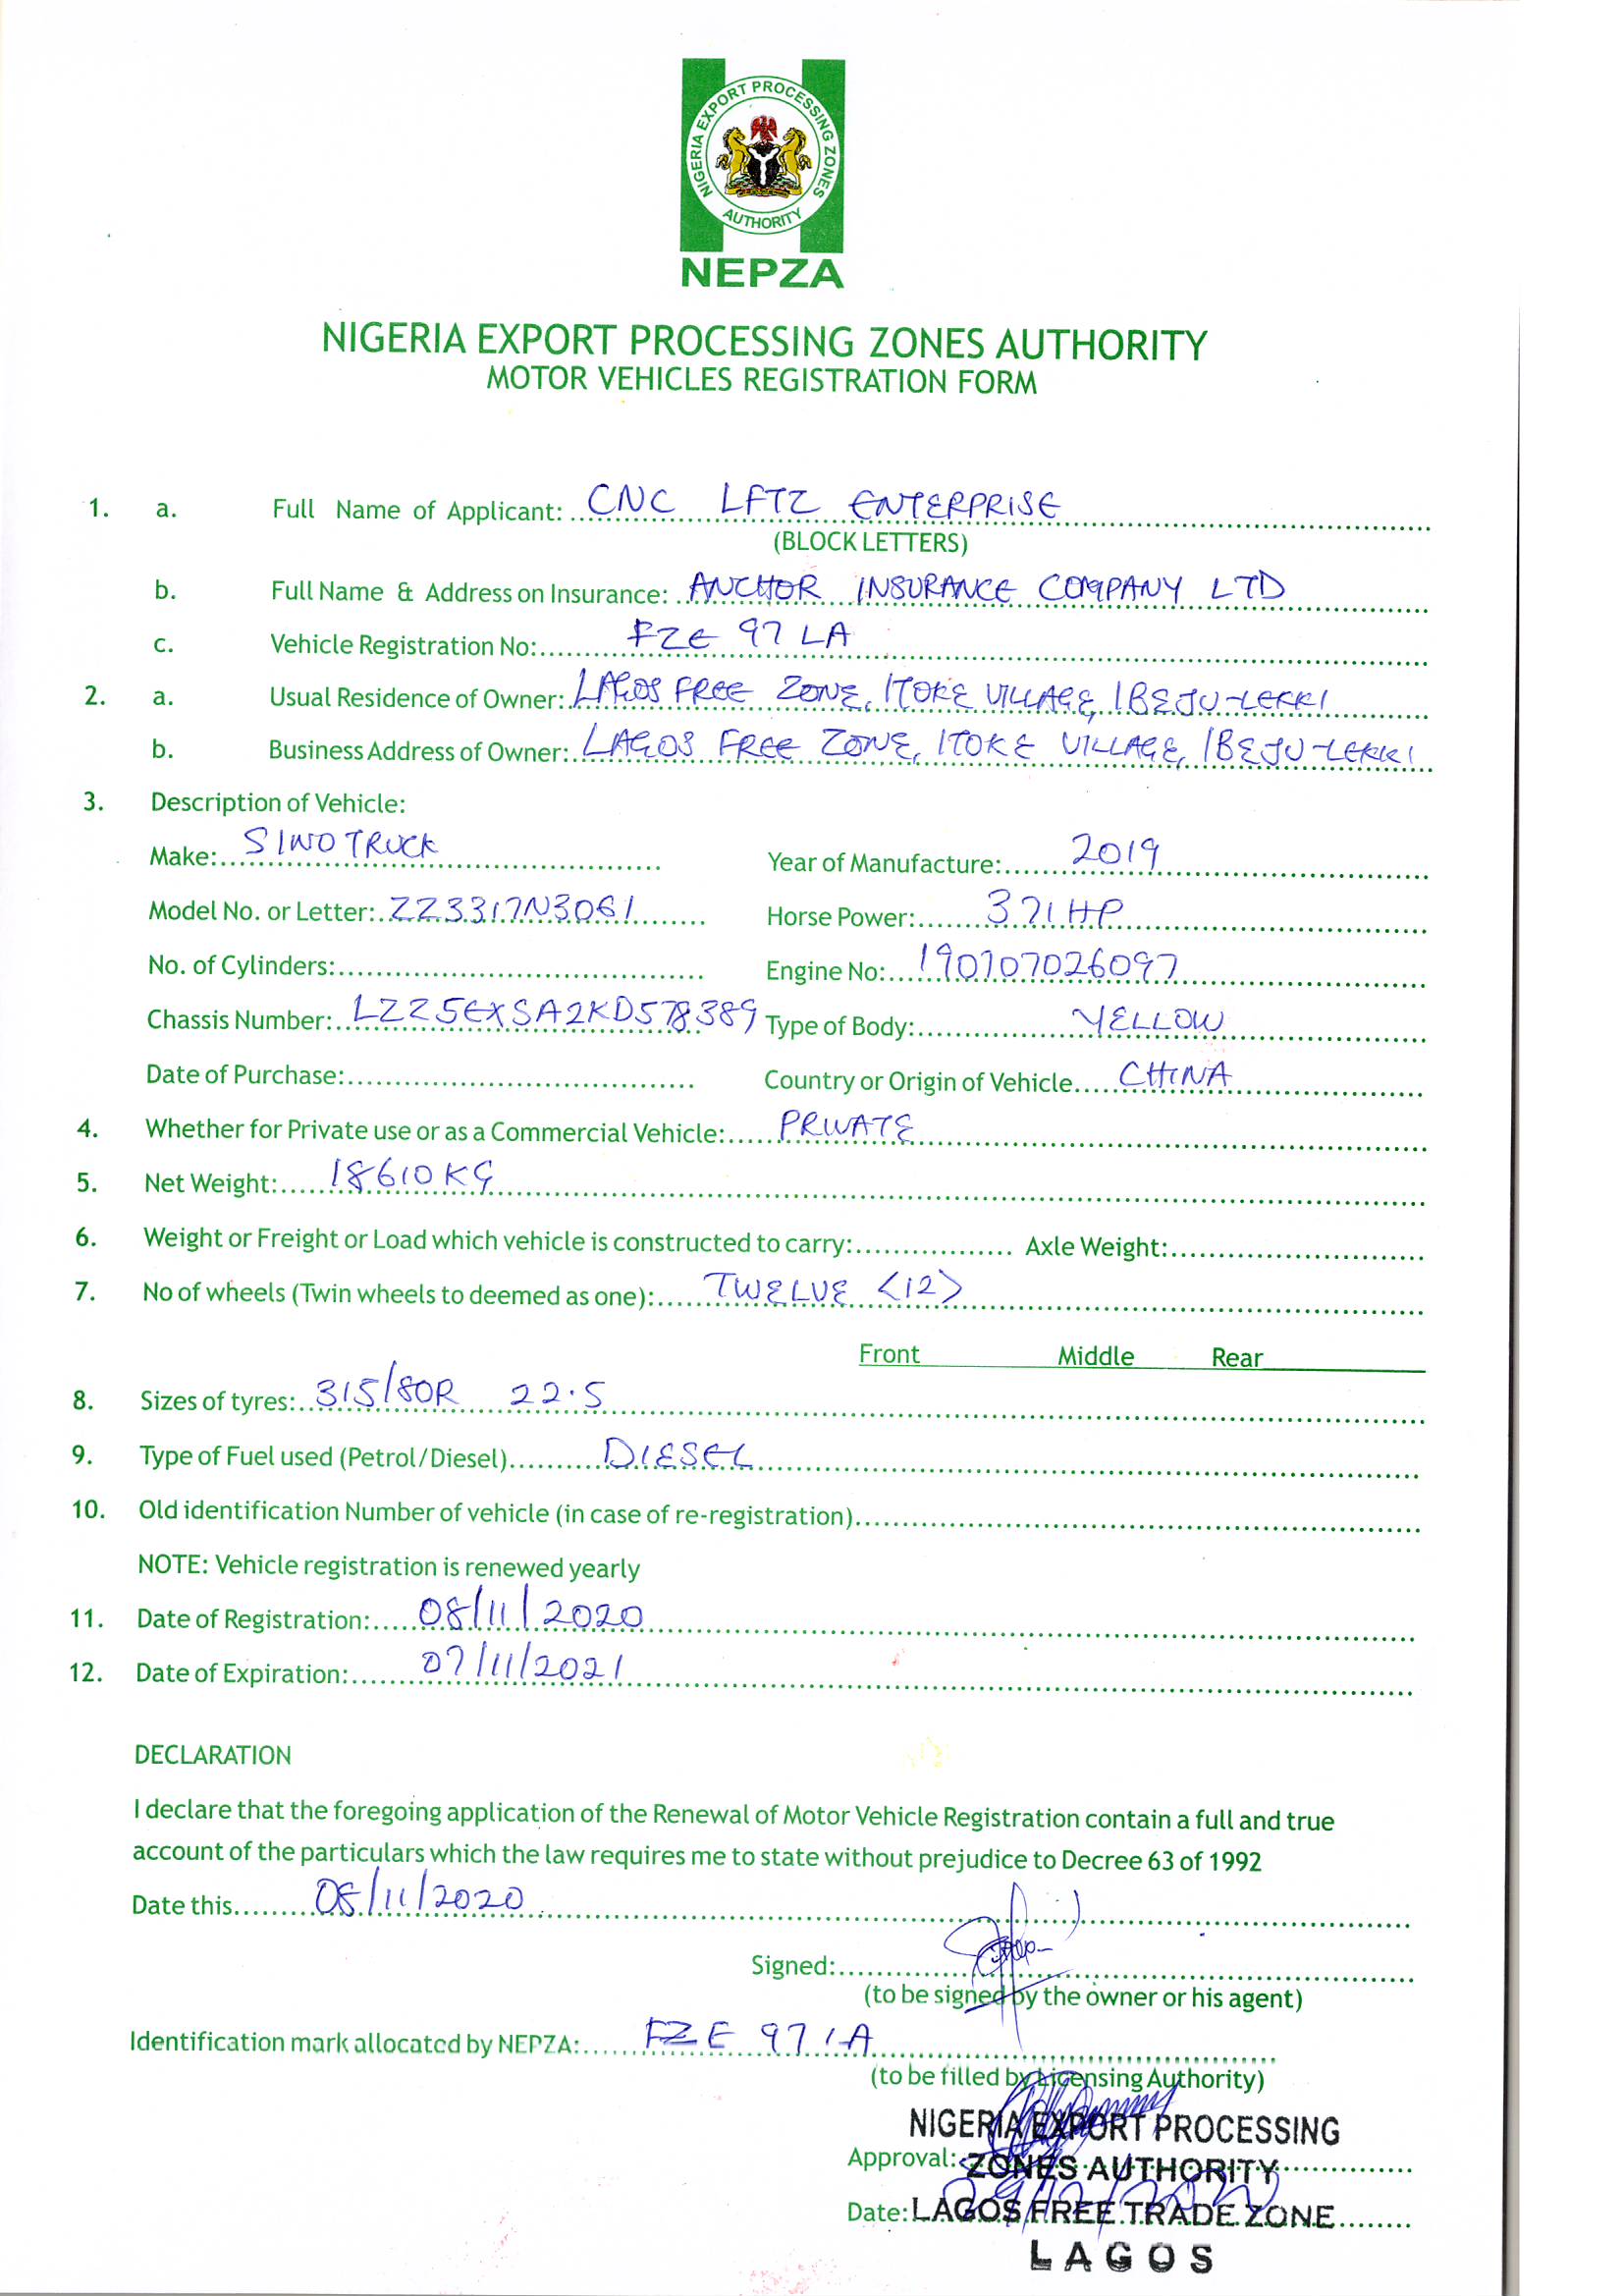 NIGERIA EXPORT PROCESSING ZONES
AUTHORITY
NEPZA
NIGERIA EXPORT PROCESSING ZONES AUTHORITY
MOTOR VEHICLES REGISTRATION FORM
1. a. Full Name of Applicant: CNC LFTZ ENTERPRISE
(BLOCK LETTERS)
b. Full Name & Address on Insurance: ANCHOR INSURANCE COMPANY LTD
c. Vehicle Registration No: FZE 97 LA
2. a. Usual Residence of Owner: LAGOS FREE ZONE, ITOKE VILLAGE, IBEJU-LEKKI
b. Business Address of Owner: LAGOS FREE ZONE, ITOKE VILLAGE, IBEJU-LEKKI
3. Description of Vehicle:
Make: SINOTRUCK Year of Manufacture: 2019
Model No. or Letter: ZZ3317N3061 Horse Power: 371HP
No. of Cylinders: Engine No: 190707026097
Chassis Number: LZZ5EXSA2KD578389 Type of Body: YELLOW
Date of Purchase: Country or Origin of Vehicle CHINA
4. Whether for Private use or as a Commercial Vehicle: PRIVATE
5. Net Weight: 18610KG
6. Weight or Freight or Load which vehicle is constructed to carry: Axle Weight:
7. No of wheels (Twin wheels to deemed as one): TWELVE <12>
Front Middle Rear
8. Sizes of tyres: 315/80R 22.5
9. Type of Fuel used (Petrol/Diesel) DIESEL
10. Old identification Number of vehicle (in case of re-registration)
NOTE: Vehicle registration is renewed yearly
11. Date of Registration: 08/11/2020
12. Date of Expiration: 07/11/2021
DECLARATION
I declare that the foregoing application of the Renewal of Motor Vehicle Registration contain a full and true
account of the particulars which the law requires me to state without prejudice to Decree 63 of 1992
Date this 08/11/2020
Signed:
(to be signed by the owner or his agent)
Identification mark allocated by NEPZA: FZE 97 LA
(to be filled by Licensing Authority)
NIGERIA EXPORT PROCESSING
Approval: ZONES AUTHORITY
Date: LAGOS FREE TRADE ZONE
LAGOS